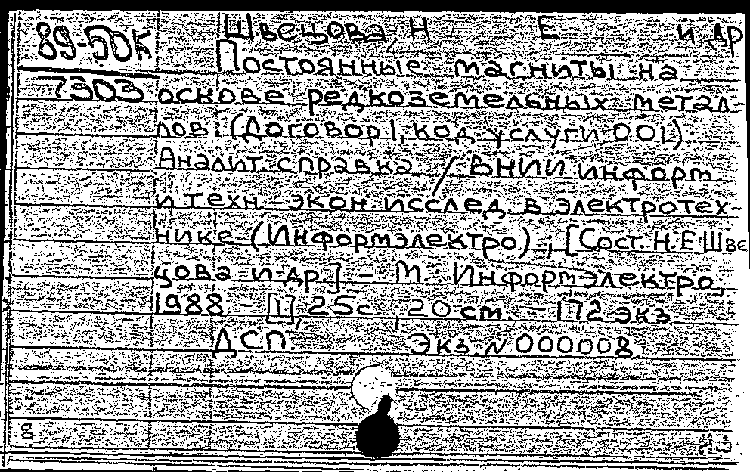 89-50К
7303
Швецова Н Е и др
Постоянные магниты на
основе редкоземельных метал-
лов: (Договор 1, код услуги 001).
Аналит. справка / ВНИИ информ.
и техн.-экон. исслед. в электротех-
нике (Информэлектро); [Сост. Н.Е. Шве
цова и др.] - М.: Информэлектро,
1988. - [1], 25с.; 20 см. - 172 экз.
ДСП. Экз. N 000008